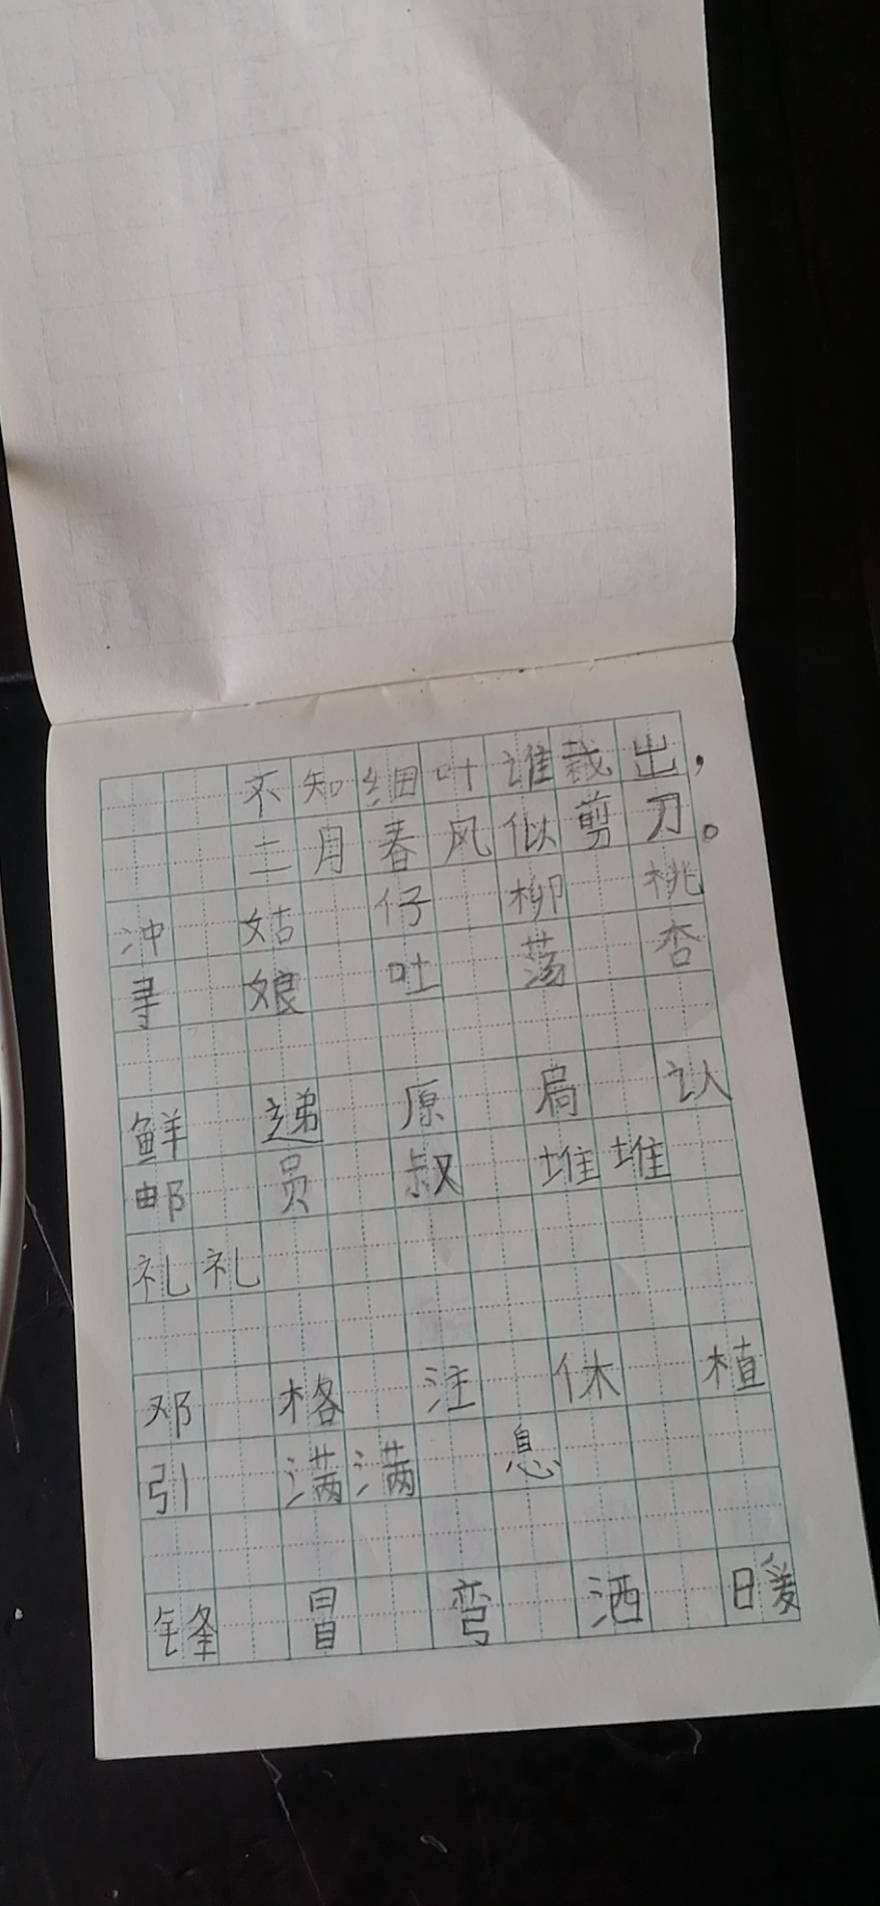 不知细叶谁裁出，
二月春风似剪刀。
冲 姑 仔 柳 桃
寻 娘 吐 荡 杏
鲜 递 原 局 认
邮 员 叔 堆堆
礼礼
邓 格 注 休 植
引 满满 息
锋 冒 弯 洒 暖